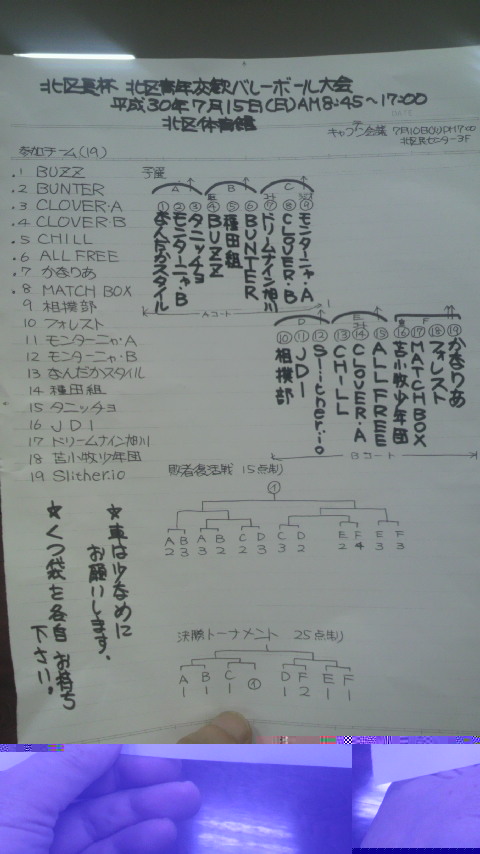 北区長杯 北区青年交歓バレーボール大会
平成30年7月15日(日)AM8:45~17:00
北区体育館
DATE
キャプテン会議 7月10日(火)PM7:00
北区民センター3F
参加チーム(19)
1 BUZZ
2 BUNTER
3 CLOVER・A
4 CLOVER・B
5 CHILL
6 ALL FREE
7 かきりあ
8 MATCH BOX
9 相撲部
10 フォレスト
11 モンターニャ・A
12 モンターニャ・B
13 なんだかスタイル
14 種田組
15 タニッチョ
16 JDI
17 ドリームナイン旭川
18 苫小牧少年団
19 Slither.io
予選
A
B
C
① なんだかスタイル
② モンターニャ・B
③ タニッチョ
④ BUZZ
⑤ 種田組
⑥ BUNTER
⑦ ドリームナイン旭川
⑧ CLOVER・B
⑨ モンターニャ・A
Aコート
D
E
F
⑩ 相撲部
⑪ JDI
⑫ Slither.io
⑬ CHILL
⑭ CLOVER・A
⑮ ALL FREE
⑯ 苫小牧少年団
⑰ MATCHBOX
⑱ フォレスト
⑲ かきりあ
Bコート
敗者復活戦 15点制
①
A B A B C D C D E F E F
2 3 3 2 2 3 3 2 2 4 3 3
決勝トーナメント 25点制
A B C ① D F E F
1 1 1 1 2 1 1
★車は少なめに
お願いします、
★くつ袋を各自お持ち
下さい!